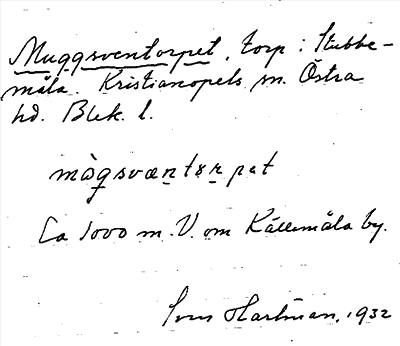 Muggsventorpet, torp i Stubbe-
måla. Kristianopels sn. Östra
hd. Blek. l.
mògsvæntɤrpet
Ca 1000 m. V. om Källemåla by.
Sven Hartman, 1932